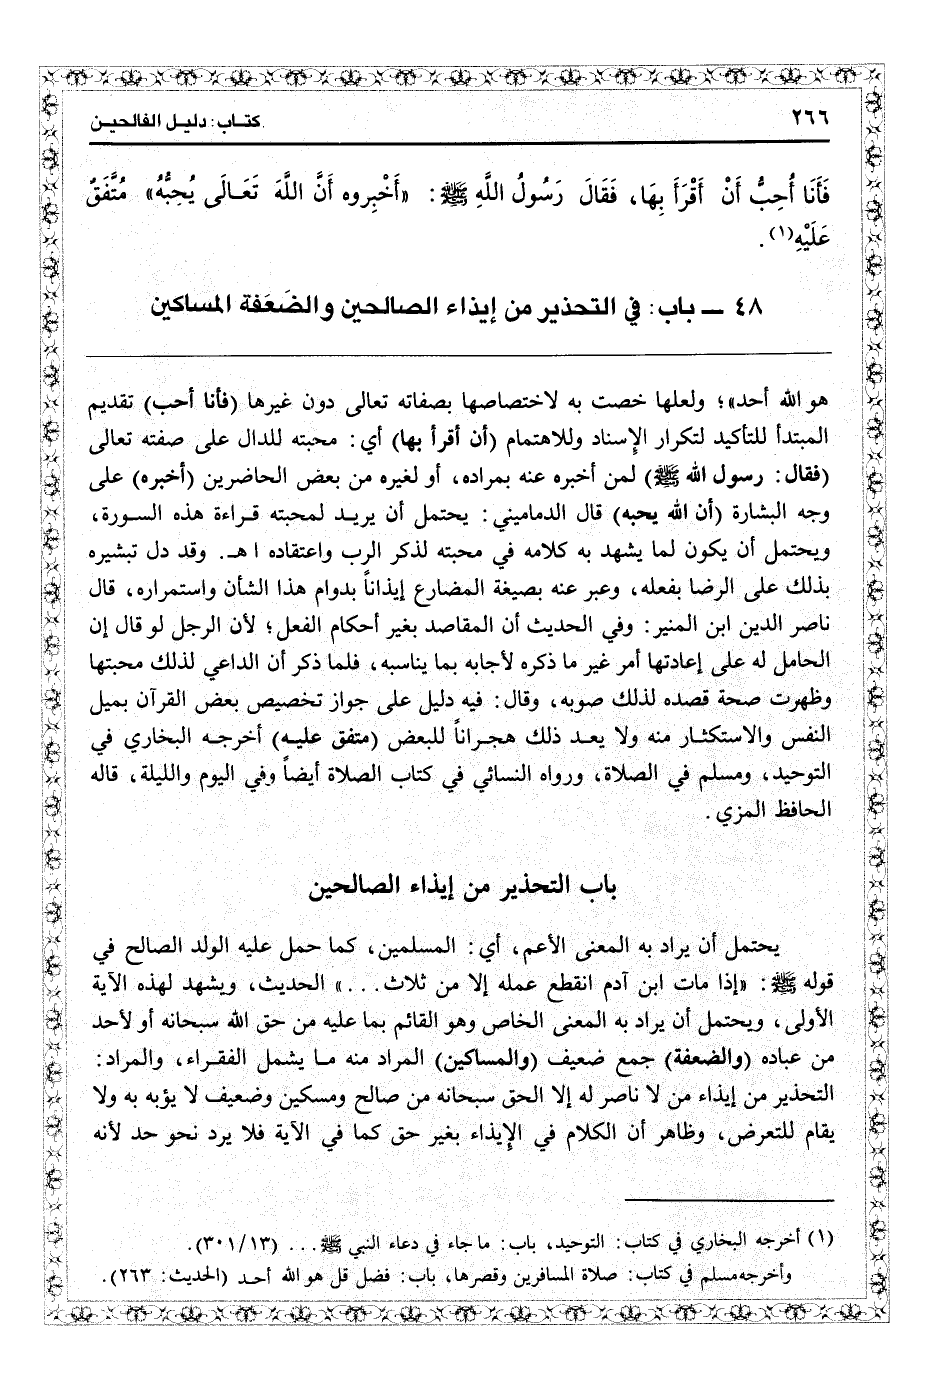 ٢٦٦
كتاب: دليل الفالحين
فَأَنَا أُحِبُّ أَنْ أَقْرَأَ بِهَا، فَقَالَ رَسُولُ اللَّهِ ﷺ: «أَخْبِروه أَنَّ اللَّهَ تَعَالَى يُحِبُّهُ» مُتَّفَقٌ
عَلَيْهِ(١).
٤٨ ــ باب: في التحذير من إيذاء الصالحين والضَعَفة المساكين
هو الله أحد»؛ ولعلها خصت به لاختصاصها بصفاته تعالى دون غيرها (فأنا أحب) تقديم
المبتدأ للتأكيد لتكرار الإسناد وللاهتمام (أن أقرأ بها) أي: محبته للدال على صفته تعالى
(فقال: رسول الله ﷺ) لمن أخبره عنه بمراده، أو لغيره من بعض الحاضرين (أخبره) على
وجه البشارة (أن الله يحبه) قال الدماميني: يحتمل أن يريد لمحبته قراءة هذه السورة،
ويحتمل أن يكون لما يشهد به كلامه في محبته لذكر الرب واعتقاده ا هـ. وقد دل تبشيره
بذلك على الرضا بفعله، وعبر عنه بصيغة المضارع إيذاناً بدوام هذا الشأن واستمراره، قال
ناصر الدين ابن المنير: وفي الحديث أن المقاصد بغير أحكام الفعل؛ لأن الرجل لو قال إن
الحامل له على إعادتها أمر غير ما ذكره لأجابه بما يناسبه، فلما ذكر أن الداعي لذلك محبتها
وظهرت صحة قصده لذلك صوبه، وقال: فيه دليل على جواز تخصيص بعض القرآن بميل
النفس والاستكثار منه ولا يعد ذلك هجراناً للبعض (متفق عليه) أخرجه البخاري في
التوحيد، ومسلم في الصلاة، ورواه النسائي في كتاب الصلاة أيضاً وفي اليوم والليلة، قاله
الحافظ المزي.
باب التحذير من إيذاء الصالحين
يحتمل أن يراد به المعنى الأعم، أي: المسلمين، كما حمل عليه الولد الصالح في
قوله ﷺ: «إذا مات ابن آدم انقطع عمله إلا من ثلاث...» الحديث، ويشهد لهذه الآية
الأولى، ويحتمل أن يراد به المعنى الخاص وهو القائم بما عليه من حق الله سبحانه أو لأحد
من عباده (والضعفة) جمع ضعيف (والمساكين) المراد منه ما يشمل الفقراء، والمراد:
التحذير من إيذاء من لا ناصر له إلا الحق سبحانه من صالح ومسكين وضعيف لا يؤبه به ولا
يقام للتعرض، وظاهر أن الكلام في الإيذاء بغير حق كما في الآية فلا يرد نحو حد لأنه
(١) أخرجه البخاري في كتاب: التوحيد، باب: ما جاء في دعاء النبي ﷺ... (٣٠١/١٣).
وأخرجه مسلم في كتاب: صلاة المسافرين وقصرها، باب: فضل قل هو الله أحد (الحديث: ٢٦٣).